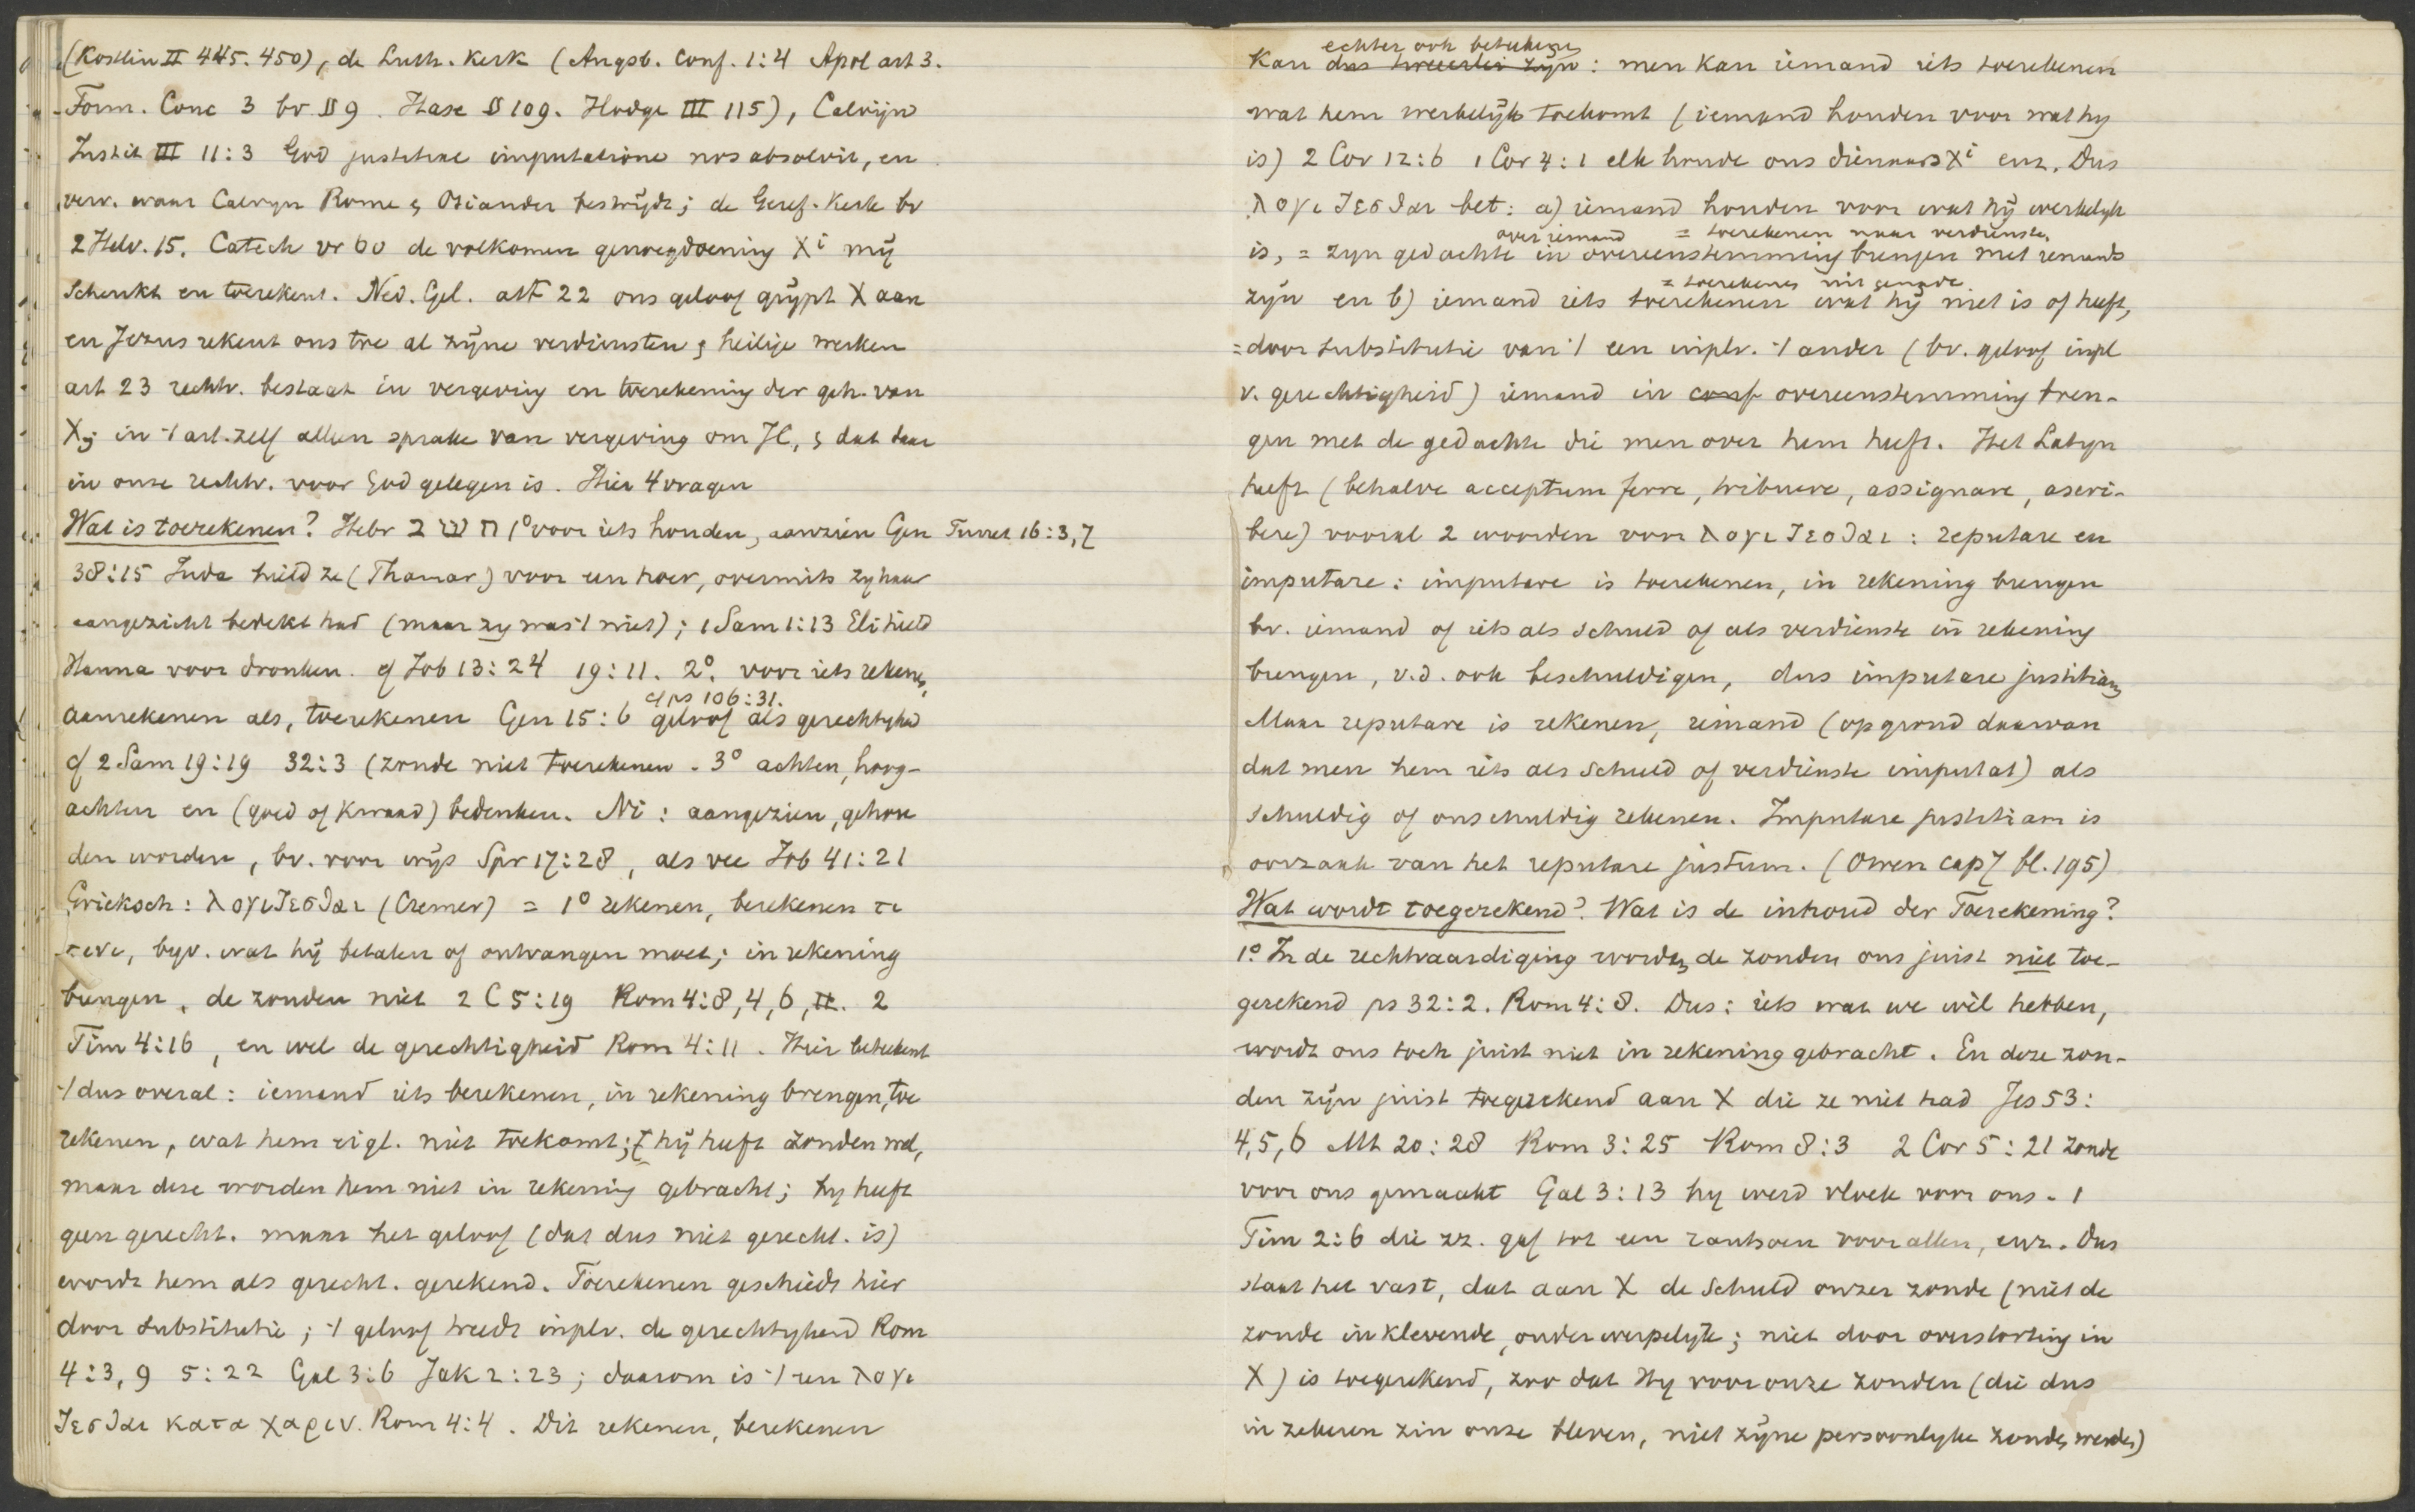 (Köstlin II 445. 450), de Luth. Kerk (Augsb. Conf. 1:4 Apol art 3.
Form. Conc 3 bv §§ 9. Hase §§ 109. Hodge III 115), Calvijn
Instit III 11:3 God justitiae imputatione nos absolvit, en
verv. waar Calvyn Rome & Osiander bestrijdt; de Geref. Kerk bv
2 Helv. 15. Catech vr 60 de volkomen genoegdoening Xi mij
schenkt en toerekent. Ned. Gel. art 22 ons geloof grijpt X aan
en Jezus rekent ons toe al zijne verdiensten & heilige werken
art 23 rechtv. bestaat in vergeving en toerekening der geh. van
X; in 't art. zelf alleen sprake van vergeving om JC, & dat daar
in onze rechtv. voor God gelegen is. Hier 4 vragen
Wat is toerekenen? Hebr חשב 1° voor iets houden, aanzien Gen Turret 16:3,7
38:15 Juda hield ze (Thamar) voor een hoer, overmits zy haar
aangezicht bedekt had (maar zy was 't niet); 1 Sam 1:13 Eli hield
Hanna voor dronken. cf Job 13:24 19:11. 2°. voor iets rekenen,
cf ps 106:31.
aanrekenen als, toerekenen Gen 15:6 geloof als gerechtighd
cf 2 Sam 19:19 32:3 (zonde niet toerekenen. 3° achten, hoog-
achten en (goed of kwaad) bedenken. Ni: aangezien, gehou
den worden, bv. voor wijs Spr 17:28, als vee Job 41:21
Grieksch: λογιζεσθαι (Cremer) = 1° rekenen, berekenen τι
τινι, byv. wat hij betalen of ontvangen moet; in rekening
brengen, de zonden niet 2 C 5:19 Rom 4:8, 4, 6, 11. 2
Tim 4:16, en wel de gerechtigheid Rom 4:11. Hier beteekent
't dus overal: iemand iets berekenen, in rekening brengen, toe
rekenen, wat hem eigl. niet toekomt; hij heeft zonden wel,
maar deze worden hem niet in rekening gebracht; hy heeft
geen gerecht. maar het geloof (dat dus niet gerecht. is)
wordt hem als gerecht. gerekend. Toerekenen geschiedt hier
door substitutie; 't geloof treedt inplv. de gerechtigheid Rom
4:3, 9 5:22 Gal 3:6 Jak 2:23; daarom is 't een λογι
ζεσθαι κατα χαριν. Rom 4:4. Dit rekenen, berekenen
echter ook beteekenen
Kan dus tweeerlei zijn: men kan iemand iets toerekenen
wat hem werkelijk toekomt (iemand houden voor wat hy
is) 2 Cor 12:6 1 Cor 4:1 elk houde ons dienaars Xi enz. Dus
λογιζεσθαι bet: a) iemand houden voor wat hij werkelyk
over iemand = toerekenen naar verdienste,
is, = zyn gedachte in overeenstemming brengen met iemands
= toerekenen uit genade
zijn en b) iemand iets toerekenen wat hij niet is of heeft,
= door substitutie van 't een inplv. 't ander (bv. geloof inpl
v. gerechtigheid) iemand in conf overeenstemming bren-
gen met de gedachte die men over hem heeft. Het Latyn
heeft (behalve acceptum ferre, tribuere, assignare, ascri-
bere) vooral 2 woorden voor λογιζεσθαι: reputare en
imputare: imputare is toerekenen, in rekening brengen
bv. iemand of iets als schuld of als verdienste in rekening
brengen, v.d. ook beschuldigen, dus imputare justitiam
Maar reputare is rekenen, iemand (op grond daarvan
dat men hem iets als schuld of verdienste imputat) als
schuldig of onschuldig rekenen. Imputare justitiam is
oorzaak van het reputare justum. (Owen cap 7 bl. 195)
Wat wordt toegerekend? Wat is de inhoud der Toerekening?
1° In de rechtvaardiging worden de zonden ons juist niet toe-
gerekend ps 32:2. Rom 4:8. Dus: iets wat we wél hebben,
wordt ons toch juist niet in rekening gebracht. En deze zon-
den zijn juist toegerekend aan X die ze niet had Jes 53:
4,5,6 Mt 20:28 Rom 3:25 Rom 8:3 2 Cor 5:21 zonde
voor ons gemaakt Gal 3:13 hy werd vloek voor ons. 1
Tim 2:6 die zz. gaf tot een rantsoen voor allen, enz. Dus
staat het vast, dat aan X de schuld onzer zonde (niet de
zonde inklevende, onderwerpelyk; niet door overstorting in
X) is toegerekend, zoo dat Hy voor onze zonden (die dus
in zekeren zin onze bleven, niet zijne persoonlyke zonden werden)